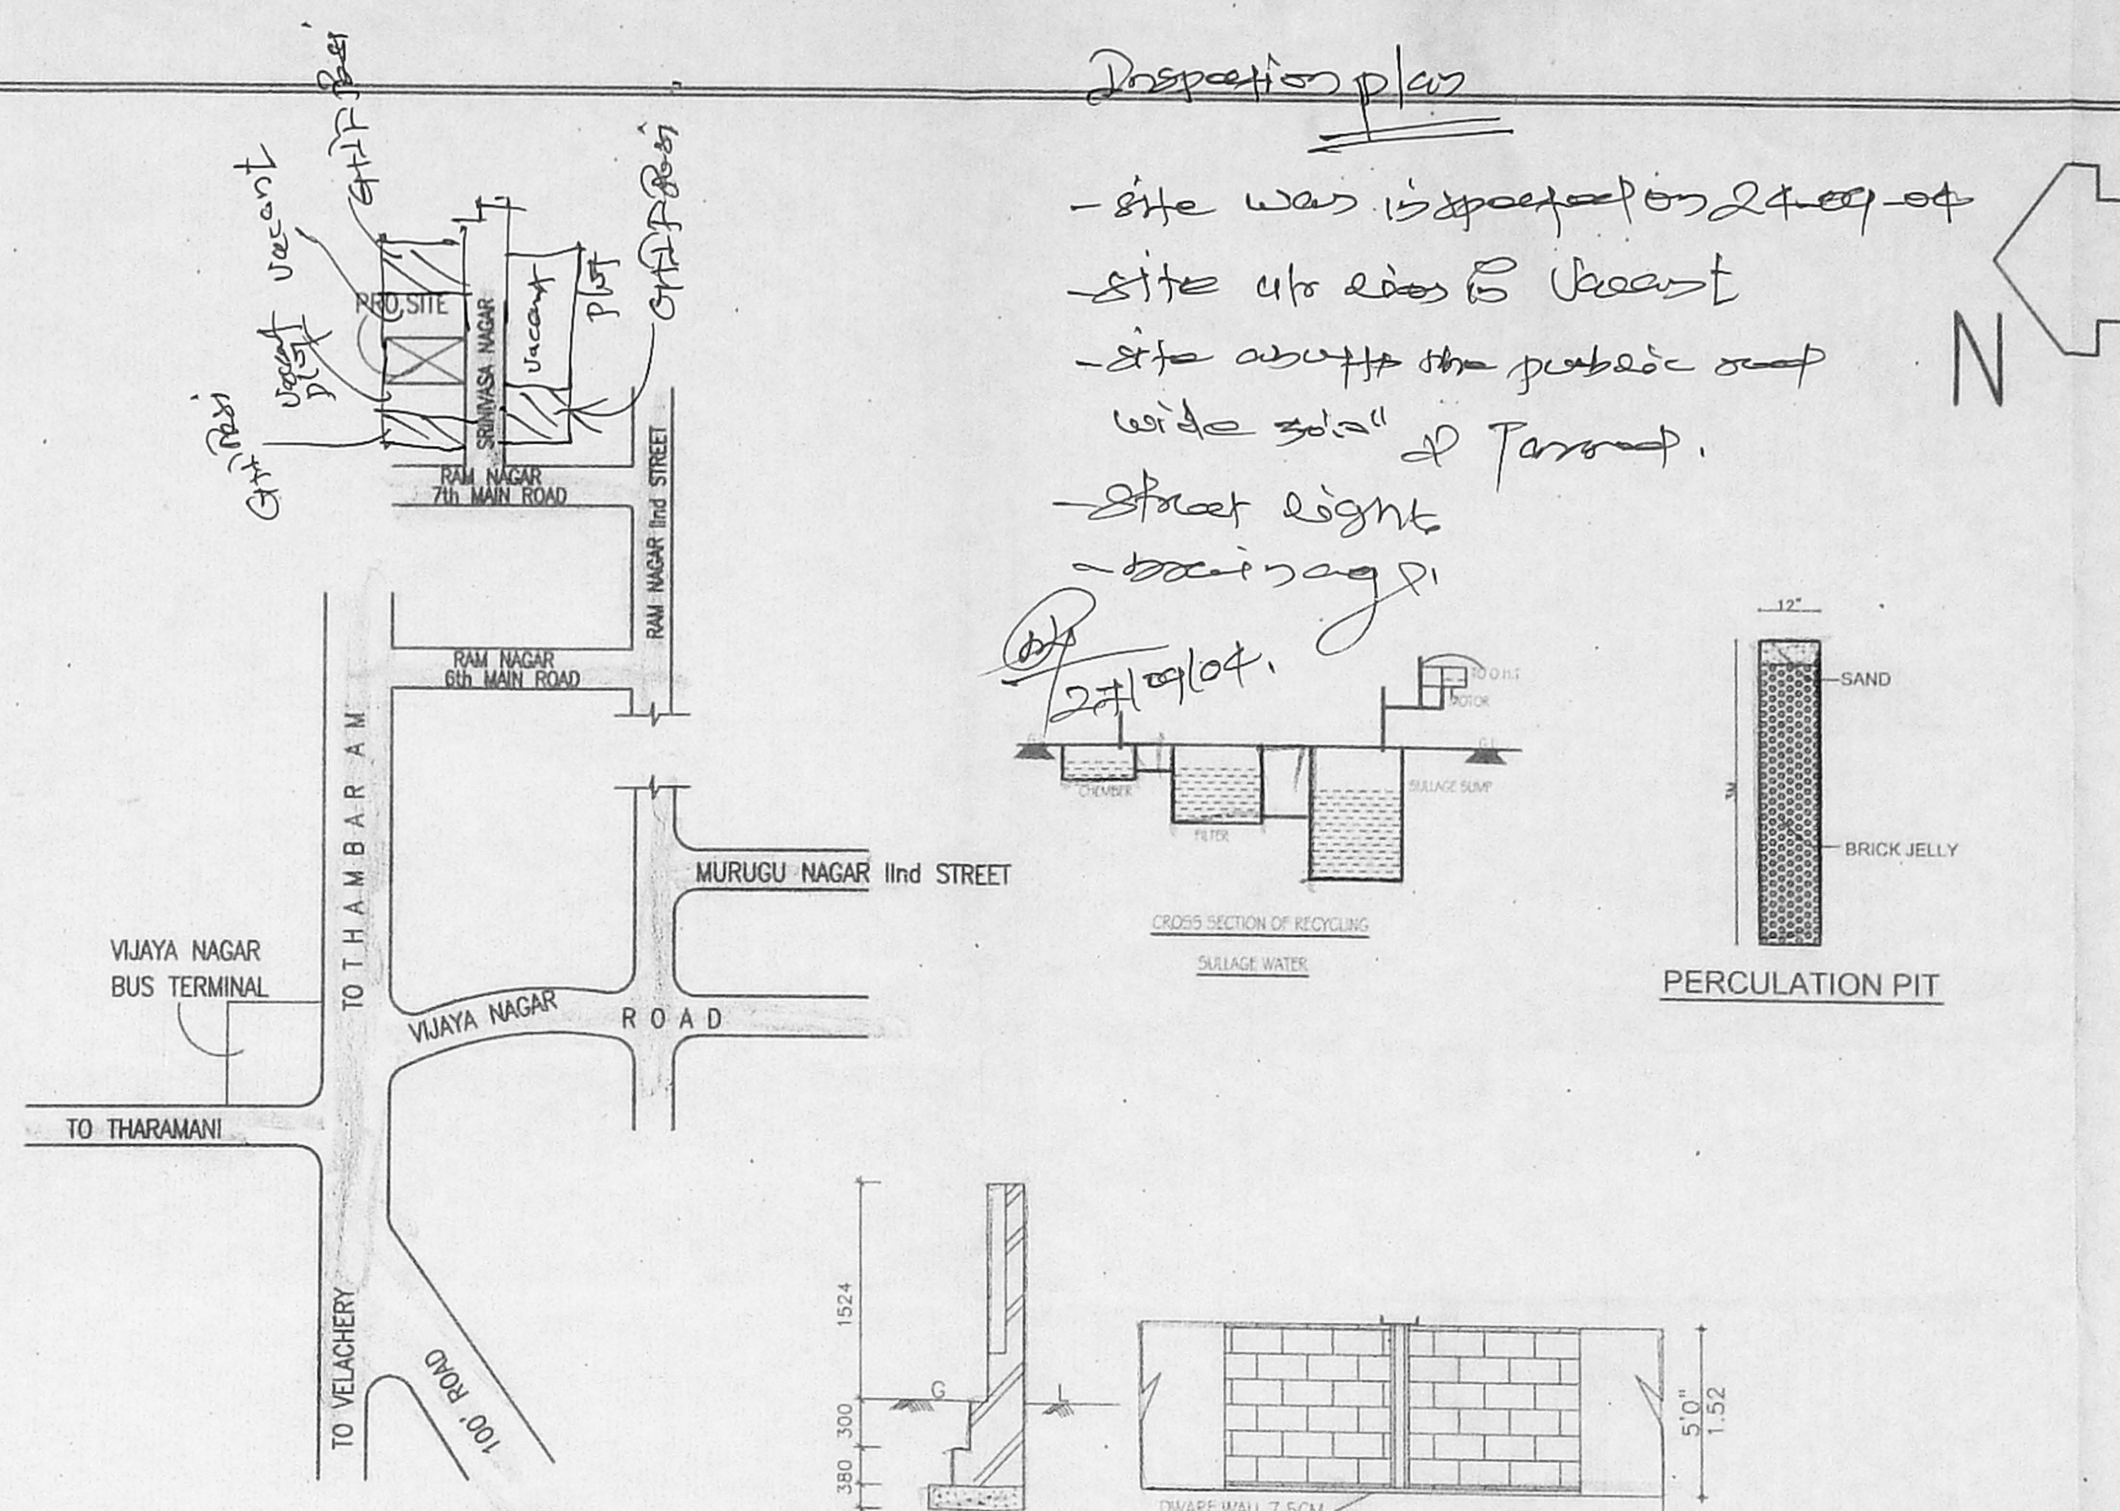 Inspection plan
- site was inspected on 24-09-04
- site u/r lies is Vacant
- site abutts the public road
wide 30'.0" & Tarred.
- Street light
- Drainage.
27/09/04.
G+1F Resi
Vacant
G+1F Resi
Vacant
plot
Resi
PRO.SITE
SRINIVASA NAGAR
Vacant
plot
RAM NAGAR
7th MAIN ROAD
RAM NAGAR IInd STREET
RAM NAGAR
6th MAIN ROAD
TO THAMBARAM
MURUGU NAGAR IInd STREET
VIJAYA NAGAR
BUS TERMINAL
VIJAYA NAGAR ROAD
TO THARAMANI
TO VELACHERY
100' ROAD
N
TO O.H.T
MOTOR
G.L
CHEMBER
FILTER
SULLAGE SUMP
CROSS SECTION OF RECYCLING
SULLAGE WATER
12"
SAND
BRICK JELLY
PERCULATION PIT
1524
G L
300
380
5'0"
1.52
DWARF WALL 7.5CM